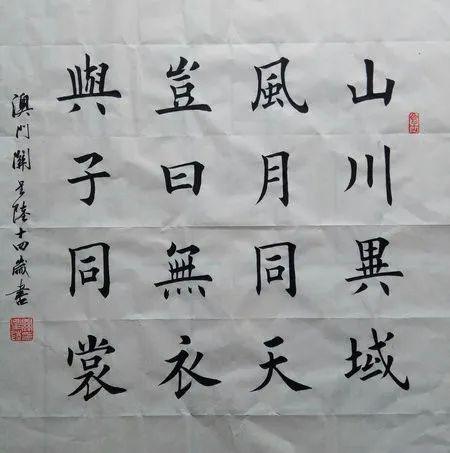 山川異域
風月同天
豈曰無衣
與子同裳
澳門關晏陸十四歲書